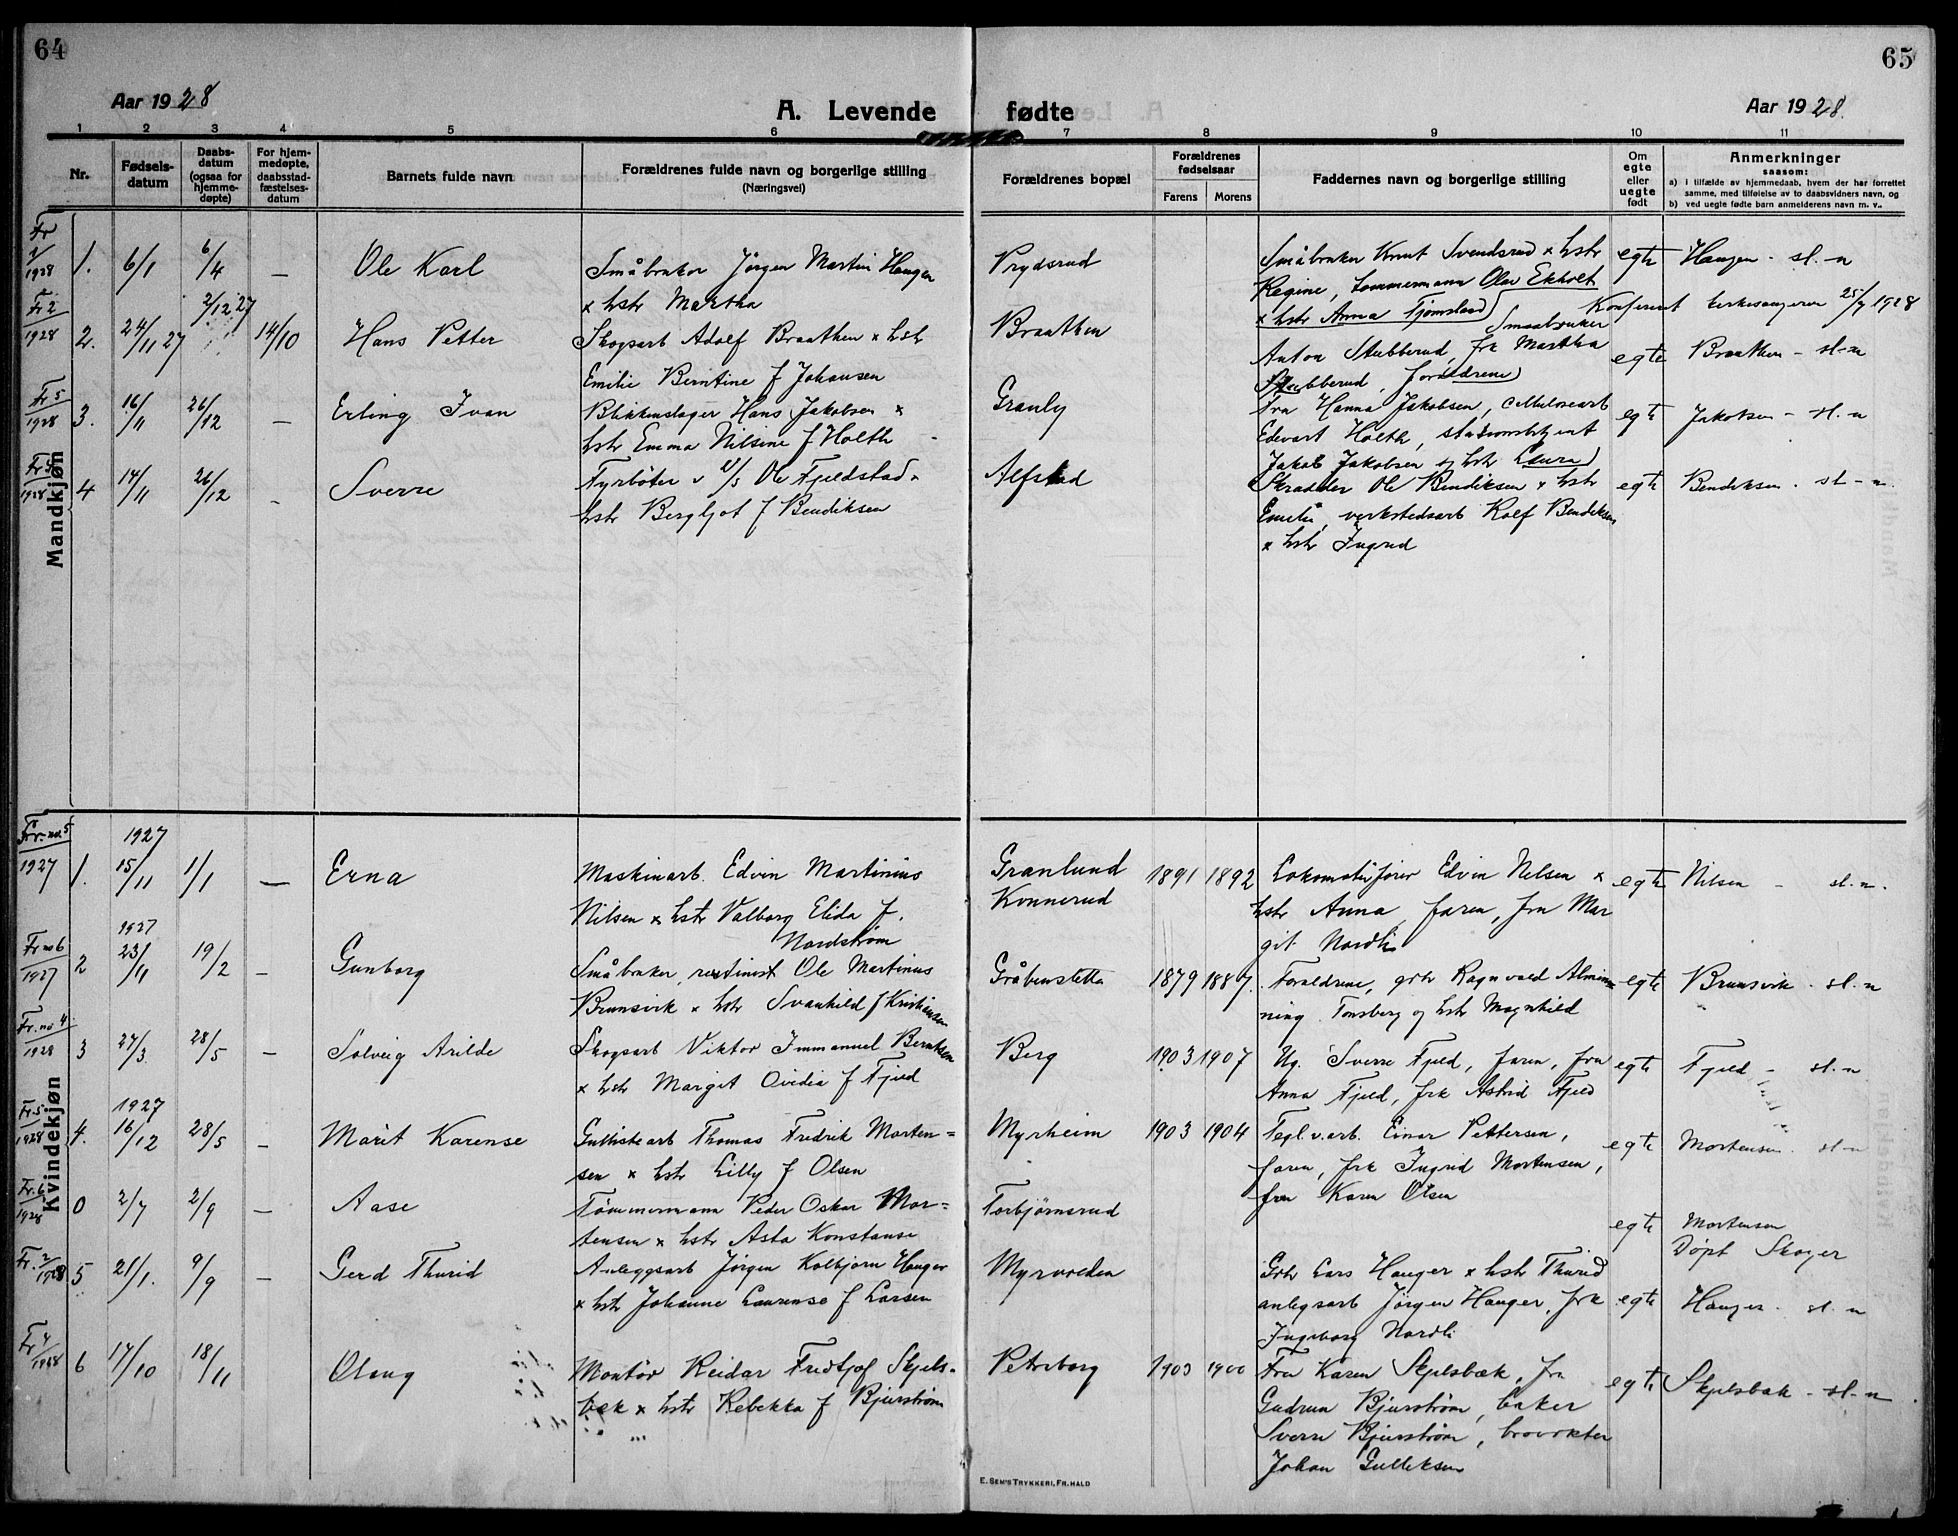 64
65
Aar 1928
A. Levende
fødte
Aar 1928.
1 2 3 4 5 6 7 8 9 10 11
Nr.
Fødsels-
datum
Daabs-
datum
(ogsaa for
hjemme-
døpte)
For hjem-
medøpte,
daabsstad-
fæstelses-
datum
Barnets fulde navn
Forældrenes fulde navn og borgerlige stilling
(Næringsvei)
Forældrenes bopæl
Forældrenes
fødselsaar
Farens
Morens
Faddernes navn og borgerlige stilling
Om
egte
eller
uegte
født
Anmerkninger
saasom:
a) i tilfælde av hjemmedaab, hvem der har forrettet
samme, med tilføielse av to daabsvidners navn, og
b) ved uegte fødte barn anmelderens navn m. v..
Mandkjøn
1. 6/1 6/4 — Ole Karl
Småbruker Jörgen Martin Haugen
x hstr Martha
Prydsrud
Småbruker Knut Svendsrud x hstr
Regine, tømmermann Olav Ekholt
x hstr Anna Tjomsland
egte
Haugen - sl.-n
Fr 2
1928
2. 24/11 27 2/12 27 14/10 Hans Petter
Skogsarb Adolf Braathen x hstr
Emilie Berntine f Johansen
Braathen
Smaabruker
Anton Stubberud, frk Martha
Stubberud, foreldrene
egte
Konferent kirkesangeren 25/7 1928
Braathen - sl-n
Fr 5
1928
3. 16/11 26/12 — Erling Ivan
Blikkenslager Hans Jakobsen x
hstr Emma Nilsine f Holth
Granly
Fru Hanna Jakobsen, cellulosearb
Edevart Holth, stasionsbetjent
Jakob Jakobsen og hstr Laura
egte
Jakobsen - sl.-n
1928
4 14/11 26/12 - Sverre
Fyrbøter v D/S Ole Fjeldstad x
hstr Bergljot f Bendiksen
Alfstad
Skrædder Ole Bendiksen x hstr
Emilie, verkstedsarb Rolf Bendiksen
x hstr Ingrid
egte
Bendiksen - sl-n.
Kvindekjøn
Fr. no. 5
1927
1927
1. 15/11 1/1 — Erna
Maskinarb. Edvin Martinius
Nilsen x hstr Valborg Elida f.
Nordstrøm
Granlund
Konnerud
1891 1892
Lokomotivfører Edvin Nilsen x
hstr Anna, faren, fru Mar
git Nordli
egte
Nilsen - sl.-n.
Fr no 6
1927
1927
2 23/11 19/2 — Gunborg
Småbruker, Ole Martinus
Brunsvik x hstr Svanhild f Kristiansen
Gråbenstetta
1879 1887.
Foreldrene, grbr Ragnvald Almin
ning Tønsberg og hstr Magnhild
egte
Brunsvik - sl.n
Fr. no 4
1928
3 27/3 28/5 — Solveig Arilde
Skogsarb Viktor Immanuel Berntsen
x hstr Margit Ovidia f Fjeld
Berg
1903 1907
Ug. Sverre Fjeld, faren, fru
Anna Fjeld, frk Astrid Fjeld
egte
Fjeld - sl.-n
Fr. 5
1928
1927
4. 16/12 28/5 — Marit Karense
arb Thomas Fredrik Morten=
sen x hstr Lilly f Olsen
Myrheim
1903 1904
Tegl.v.arb. Einar Pettersen,
faren, frk Ingrid Mortensen,
fru Karen Olsen
egte
Mortensen. sl-n
Fr. 6
1928
0 2/7 2/9 — Aase
Tømmermann Peder Oskar Mor=
tensen x hstr Asta Konstanse
Torbjørnsrud
egte
Mortensen
Døpt Skoger
Fr. 2/1928
5 21/1. 9/9 — Gerd Thurid
Anleggsarb Jørgen Kolbjørn Hauger
x hstr Johanne Laurense f Larsen
Myrvolden
Grbr Lars Hauger x hstr Thurid
anlegsarb Jörgen Hauger, frk
Ingeborg Nordli
egte
Hauger - sl.-n
Fr 4/1928
6 17/10 18/11 Olaug
Montör Reidar Fridtjof Skjels-
bæk x hstr Rebekka f Bjurstrøm
Petersborg
1903 1900
Fru Karen Skjelsbæk, fru
Gudrun Bjurstrøm, baker
Sverre Bjurstrøm, brovokter
Johan Gulliksen
egte
Skjelsbæk - sl-n
E. SEM'S TRYKKERI, FR.HALD